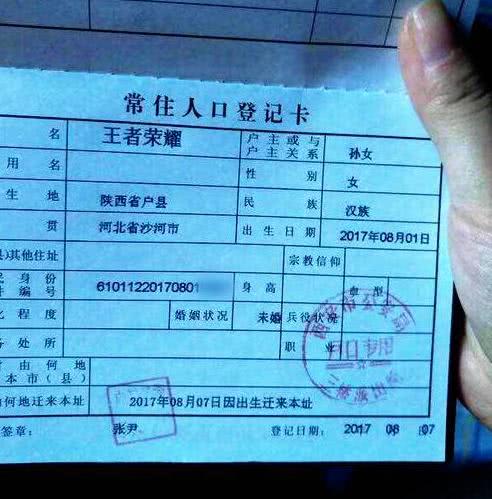 常住人口登记卡
名 王者荣耀 户主或与户主关系 孙女
用名 性别 女
生地 陕西省户县 民族 汉族
贯 河北省沙河市 出生日期 2017年08月01日
其他住址 宗教信仰
民身份件编号 61011220170801 身高 血型
化程度 婚姻状况 未婚 兵役状况
务处所 职业
由何地本市(县)
何地迁来本址 2017年08月07日因出生迁来本址
签章: 张尹 登记日期: 2017 08 07